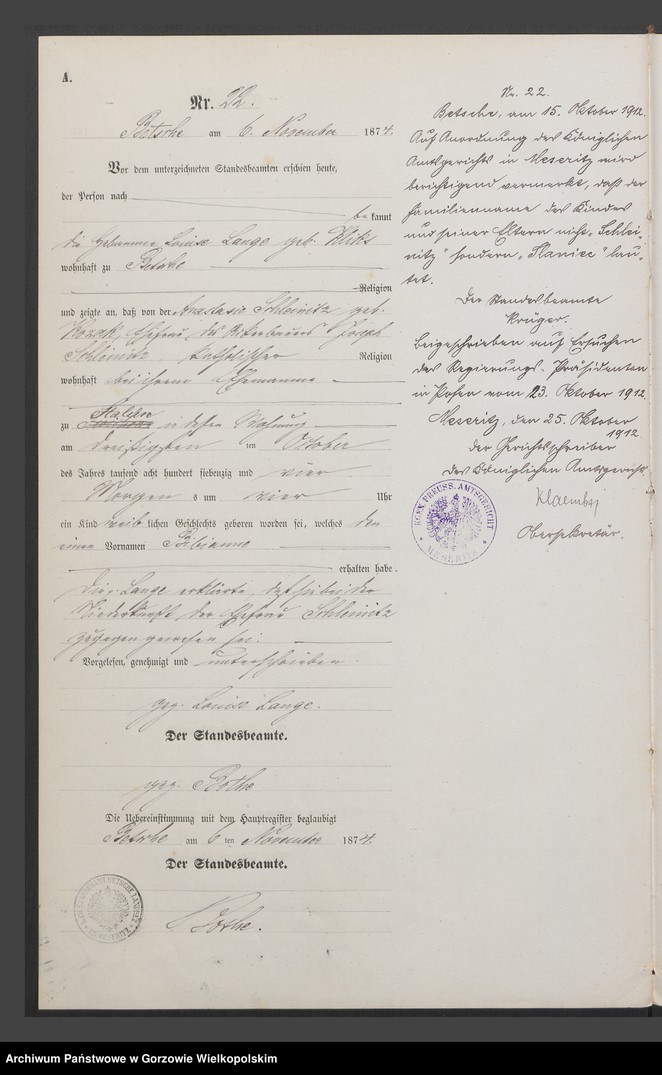 A.
Nr. 22.
Betsche am 6. November 1874.
Vor dem unterzeichneten Standesbeamten erschien heute,
der Person nach
bekannt
die Hebamme Louise Lange geb.
wohnhaft zu Betsche
Religion
und zeigte an, daß von der Anastasia Schleinitz geb.
Kozak, Ehefrau des Ackerbauers Joseph
Schleinitz katholischer Religion
wohnhaft bei ihrem Ehemanne
zu in dessen Wohnung
am dreißigsten ten October
des Jahres tausend acht hundert siebenzig und vier
Morgens um vier Uhr
ein Kind weiblichen Geschlechts geboren worden sei, welches den
einen Vornamen Bibianna
erhalten habe.
Die Lange erklärte, daß sie bei der
Niederkunft der Ehefrau Schleinitz
zugegen gewesen sei.
Vorgelesen, genehmigt und unterschrieben.
gez. Louise Lange.
Der Standesbeamte.
gez. Bothe
Die Uebereinstimmung mit dem Hauptregister beglaubigt
Betsche am 6 ten November 1874.
Der Standesbeamte.
Bothe.
Nr. 22.
Betsche, am 15. Oktober 1912.
Auf Anordnung des Königlichen
Amtsgerichts in Meseritz wird
berichtigend vermerkt, daß der
Familienname des Kindes
und seiner Eltern nicht „Schlei-
nitz" sondern „Slaniec" lau-
tet.
Der Standesbeamte
Krüger.
Beigeschrieben auf Ersuchen
des Regierungs-Präsidenten
in Posen vom 23. Oktober 1912.
Meseritz, den 25. Oktober
1912.
Der Gerichtsschreiber
des Königlichen Amtsgerichts.
Obersekretär.
KÖN. PREUSS. AMTSGERICHT
* MESERITZ *
Archiwum Państwowe w Gorzowie Wielkopolskim